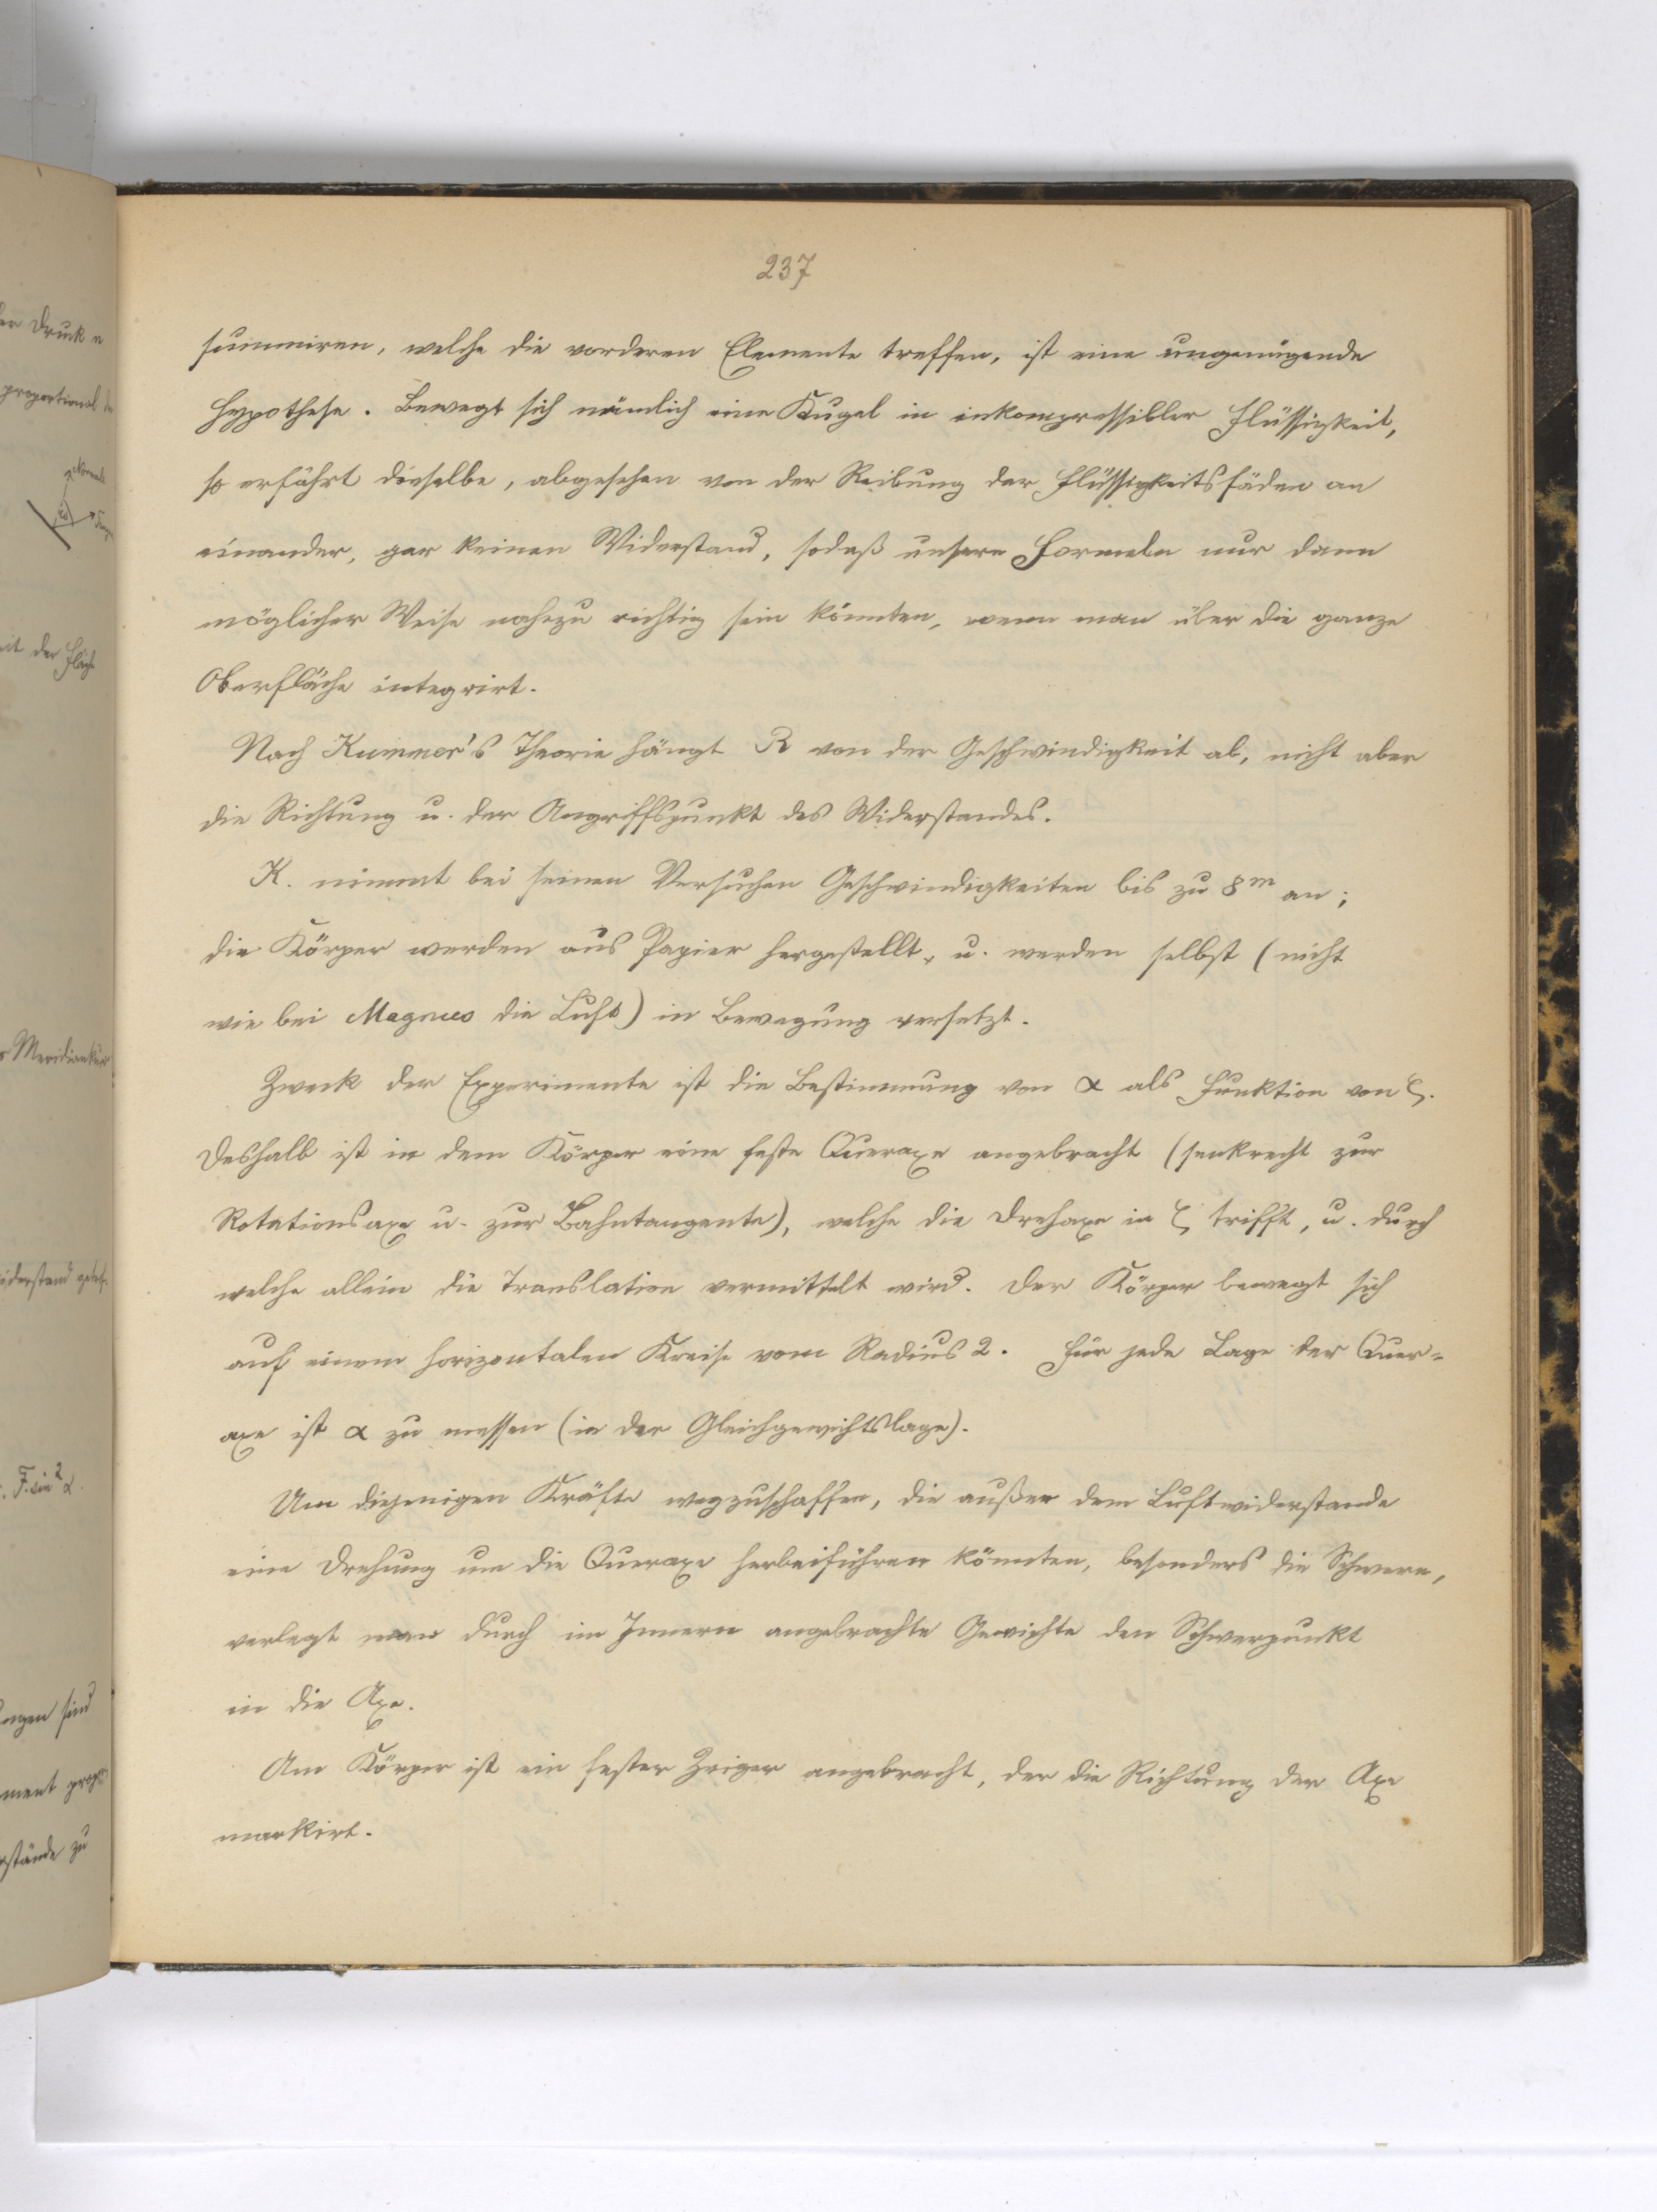 237
summiren, welche die vorderen Elemente treffen, ist eine ungenügende
Hypothese. Bewegt sich nämlich eine Kugel in inkompressibler Flüssigkeit,
so erfährt dieselbe, abgesehen von der Reibung der Flüssigkeitsfäden an
einander, gar keinen Widerstand, sodaß unsere Formeln nur dann
möglicher Weise nahezu richtig sein könnten, wenn man über die ganze
Oberfläche integrirt.
Nach Kummer's Theorie hängt R von der Geschwindigkeit ab, nicht aber
die Richtung u. der Angriffspunkt des Widerstandes.
K. nimmt bei seinen Versuchen Geschwindigkeiten bis zu 8m an;
die Körper werden aus Papier hergestellt, u. werden selbst (nicht
wie bei Magnus die Luft) in Bewegung versetzt.
Zweck der Experimente ist die Bestimmung von α als Funktion von ζ.
Deshalb ist in dem Körper eine feste Queraxe angebracht (senkrecht zur
Rotationsaxe u. zur Bahntangente), welche die Drehaxe in ζ trifft, u. durch
welche allein die Translation vermittelt wird. Der Körper bewegt sich
auf einem horizontalen Kreise vom Radius 2. Für jede Lage der Quer=
axe ist α zu messen (in der Gleichgewichtslage).
Um diejenigen Kräfte wegzuschaffen, die außer dem Luftwiderstande
eine Drehung um die Queraxe herbeiführen könnten, besonders die Schwere,
verlegt man durch im Innern angebrachte Gewichte den Schwerpunkt
in die Axe.
Am Körper ist ein fester Zeiger angebracht, der die Richtung der Axe
markirt.